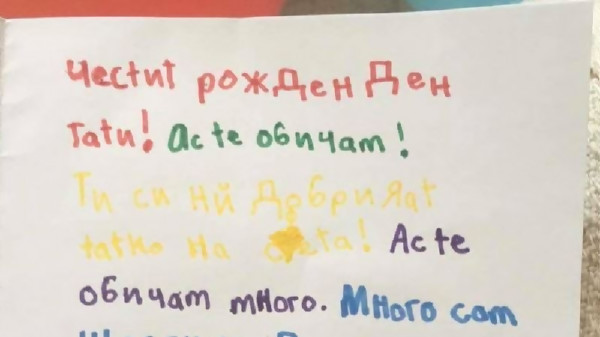 Честит рожден Ден
Тати! Ас те обичам!
Ти си нй Добрият
татко на света! Ас те
обичам много. Много сам